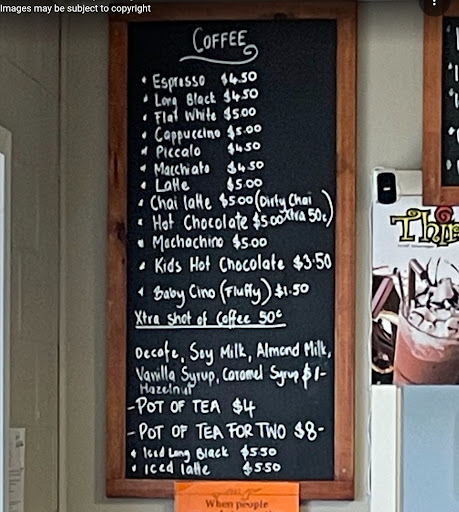 Images may be subject to copyright
COFFEE
• Espresso $4.50
• Long Black $4.50
• Flat White $5.00
• Cappuccino $5.00
• Piccalo $4.50
• Macchiato $4.50
• Latte $5.00
• Chai latte $5.00 (Dirty Chai Xtra 50c)
• Hot Chocolate $5.00
• Mochachino $5.00
• Kids Hot Chocolate $3.50
• Baby Cino (Fluffy) $1.50
Xtra shot of Coffee 50¢
Decafe, Soy Milk, Almond Milk,
Vanilla Syrup, Caramel Syrup $1-
Hazelnut
- POT OF TEA $4
- POT OF TEA FOR TWO $8-
• Iced Long Black $5.50
• iced latte $5.50
When people